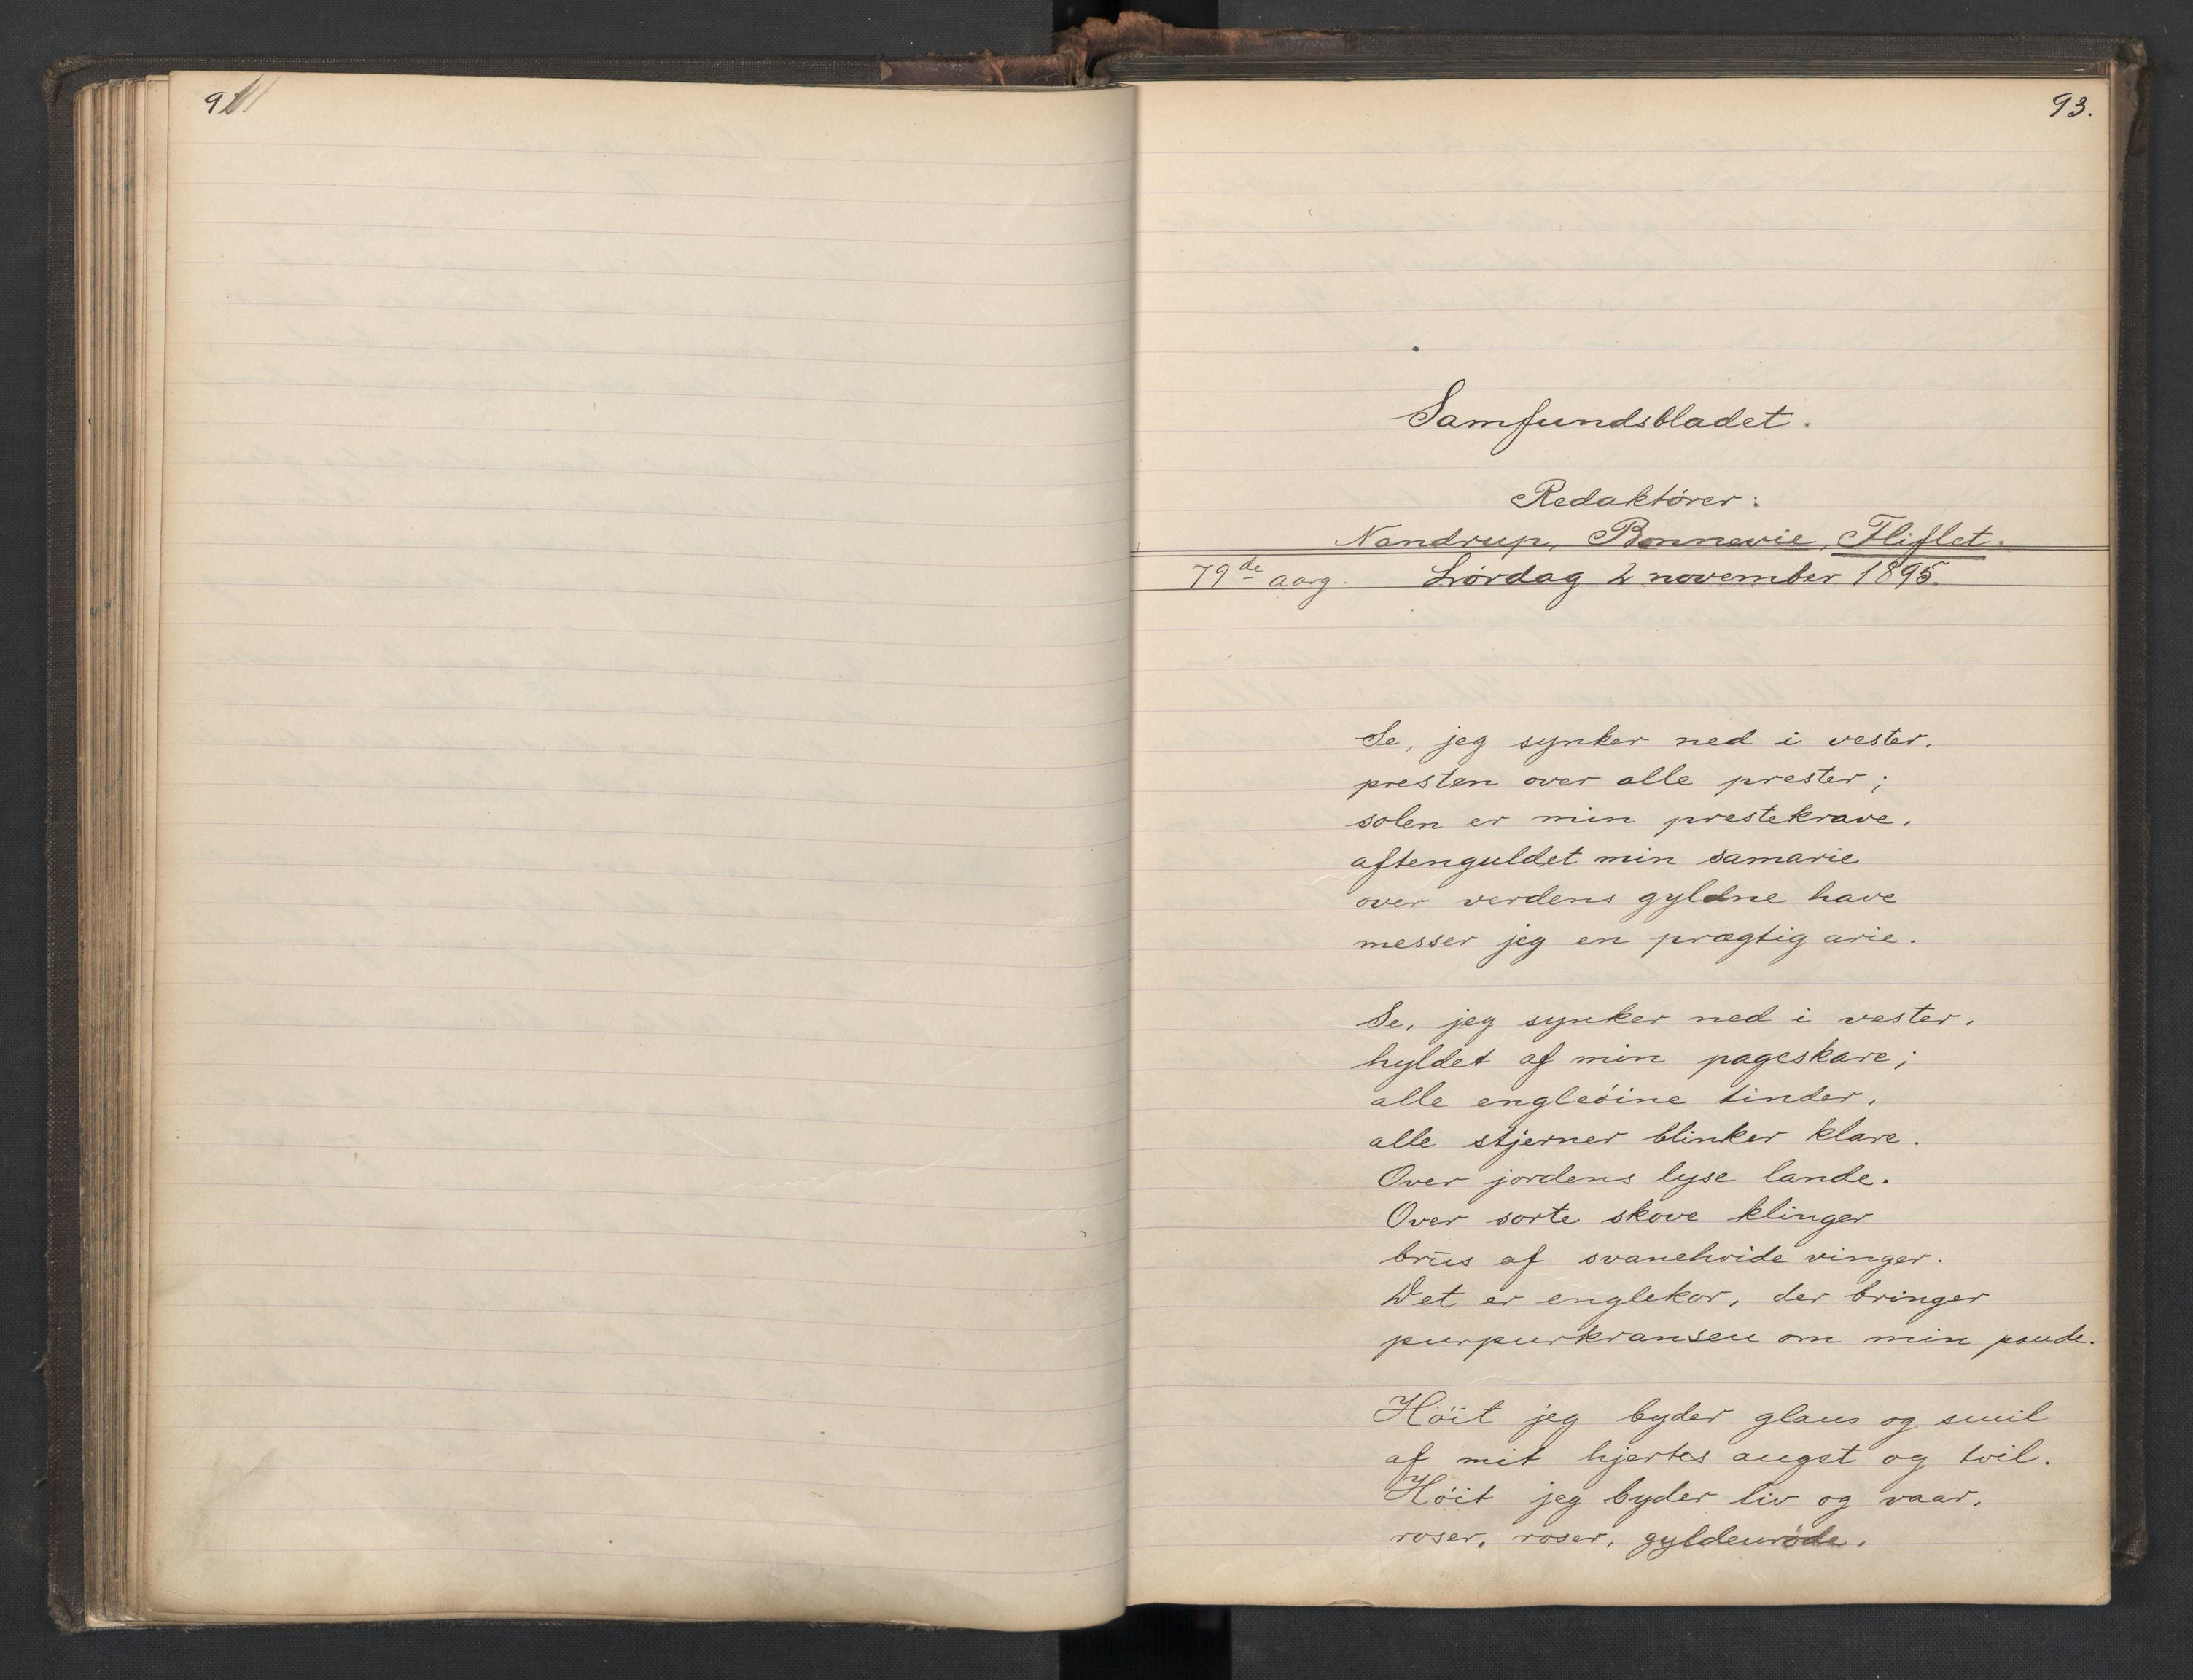 93.
Samfundsbladet.
Redaktører:
Nandrup, Bonnevie, Fliflet.
79de aarg. Lørdag 2 november 1895.
Se, jeg synker ned i vester,
presten over alle prester;
solen er min prestekrave,
aftenguldet min samarie
over verdens gyldne have
messer jeg en prægtig arie.
Se, jeg synker ned i vester,
hyldet af min pageskare;
alle engleøine tinder,
alle stjerner blinker klare.
Over jordens lyse lande.
Over sorte skove klinger
brus af svanehvide vinger.
Det er englekor, der bringer
purpurkransen om min pande.
Høit jeg byder glans og smil
af mit hjertes angst og tvil.
Høit jeg byder liv og vaar,
roser, roser, gyldenrøde.